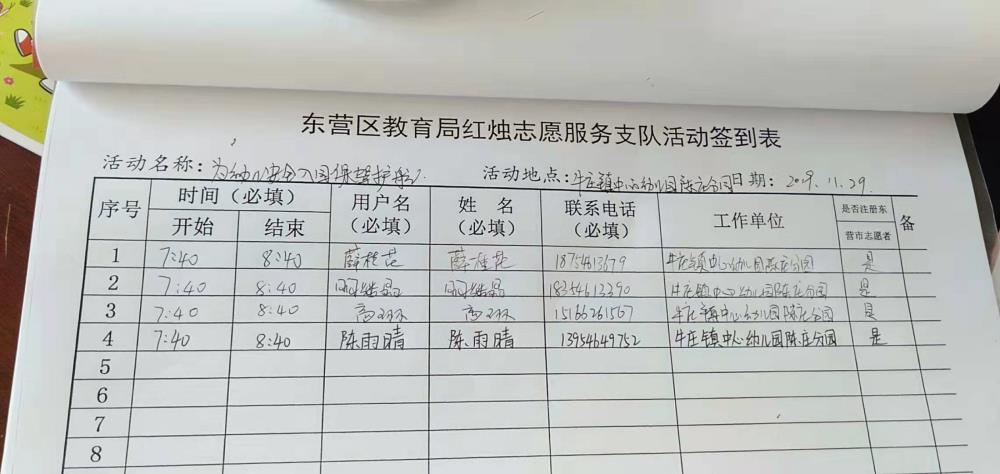 东营区教育局红烛志愿服务支队活动签到表
活动名称：为幼儿安全入园保驾护航 活动地点：牛庄镇中心幼儿园陈庄分园 日期：2019.11.29
序号 时间（必填） 用户名（必填） 姓 名（必填） 联系电话（必填） 工作单位 是否注册东营市志愿者 备
开始 结束
1 7:40 8:40 薛桂花 薛桂花 18754613679 牛庄镇中心幼儿园陈庄分园 是
2 7:40 8:40 18354613390 牛庄镇中心幼儿园陈庄分园 是
3 7:40 8:40 15166261567 牛庄镇中心幼儿园陈庄分园 是
4 7:40 8:40 陈雨晴 陈雨晴 13954649752 牛庄镇中心幼儿园陈庄分园 是
5
6
7
8